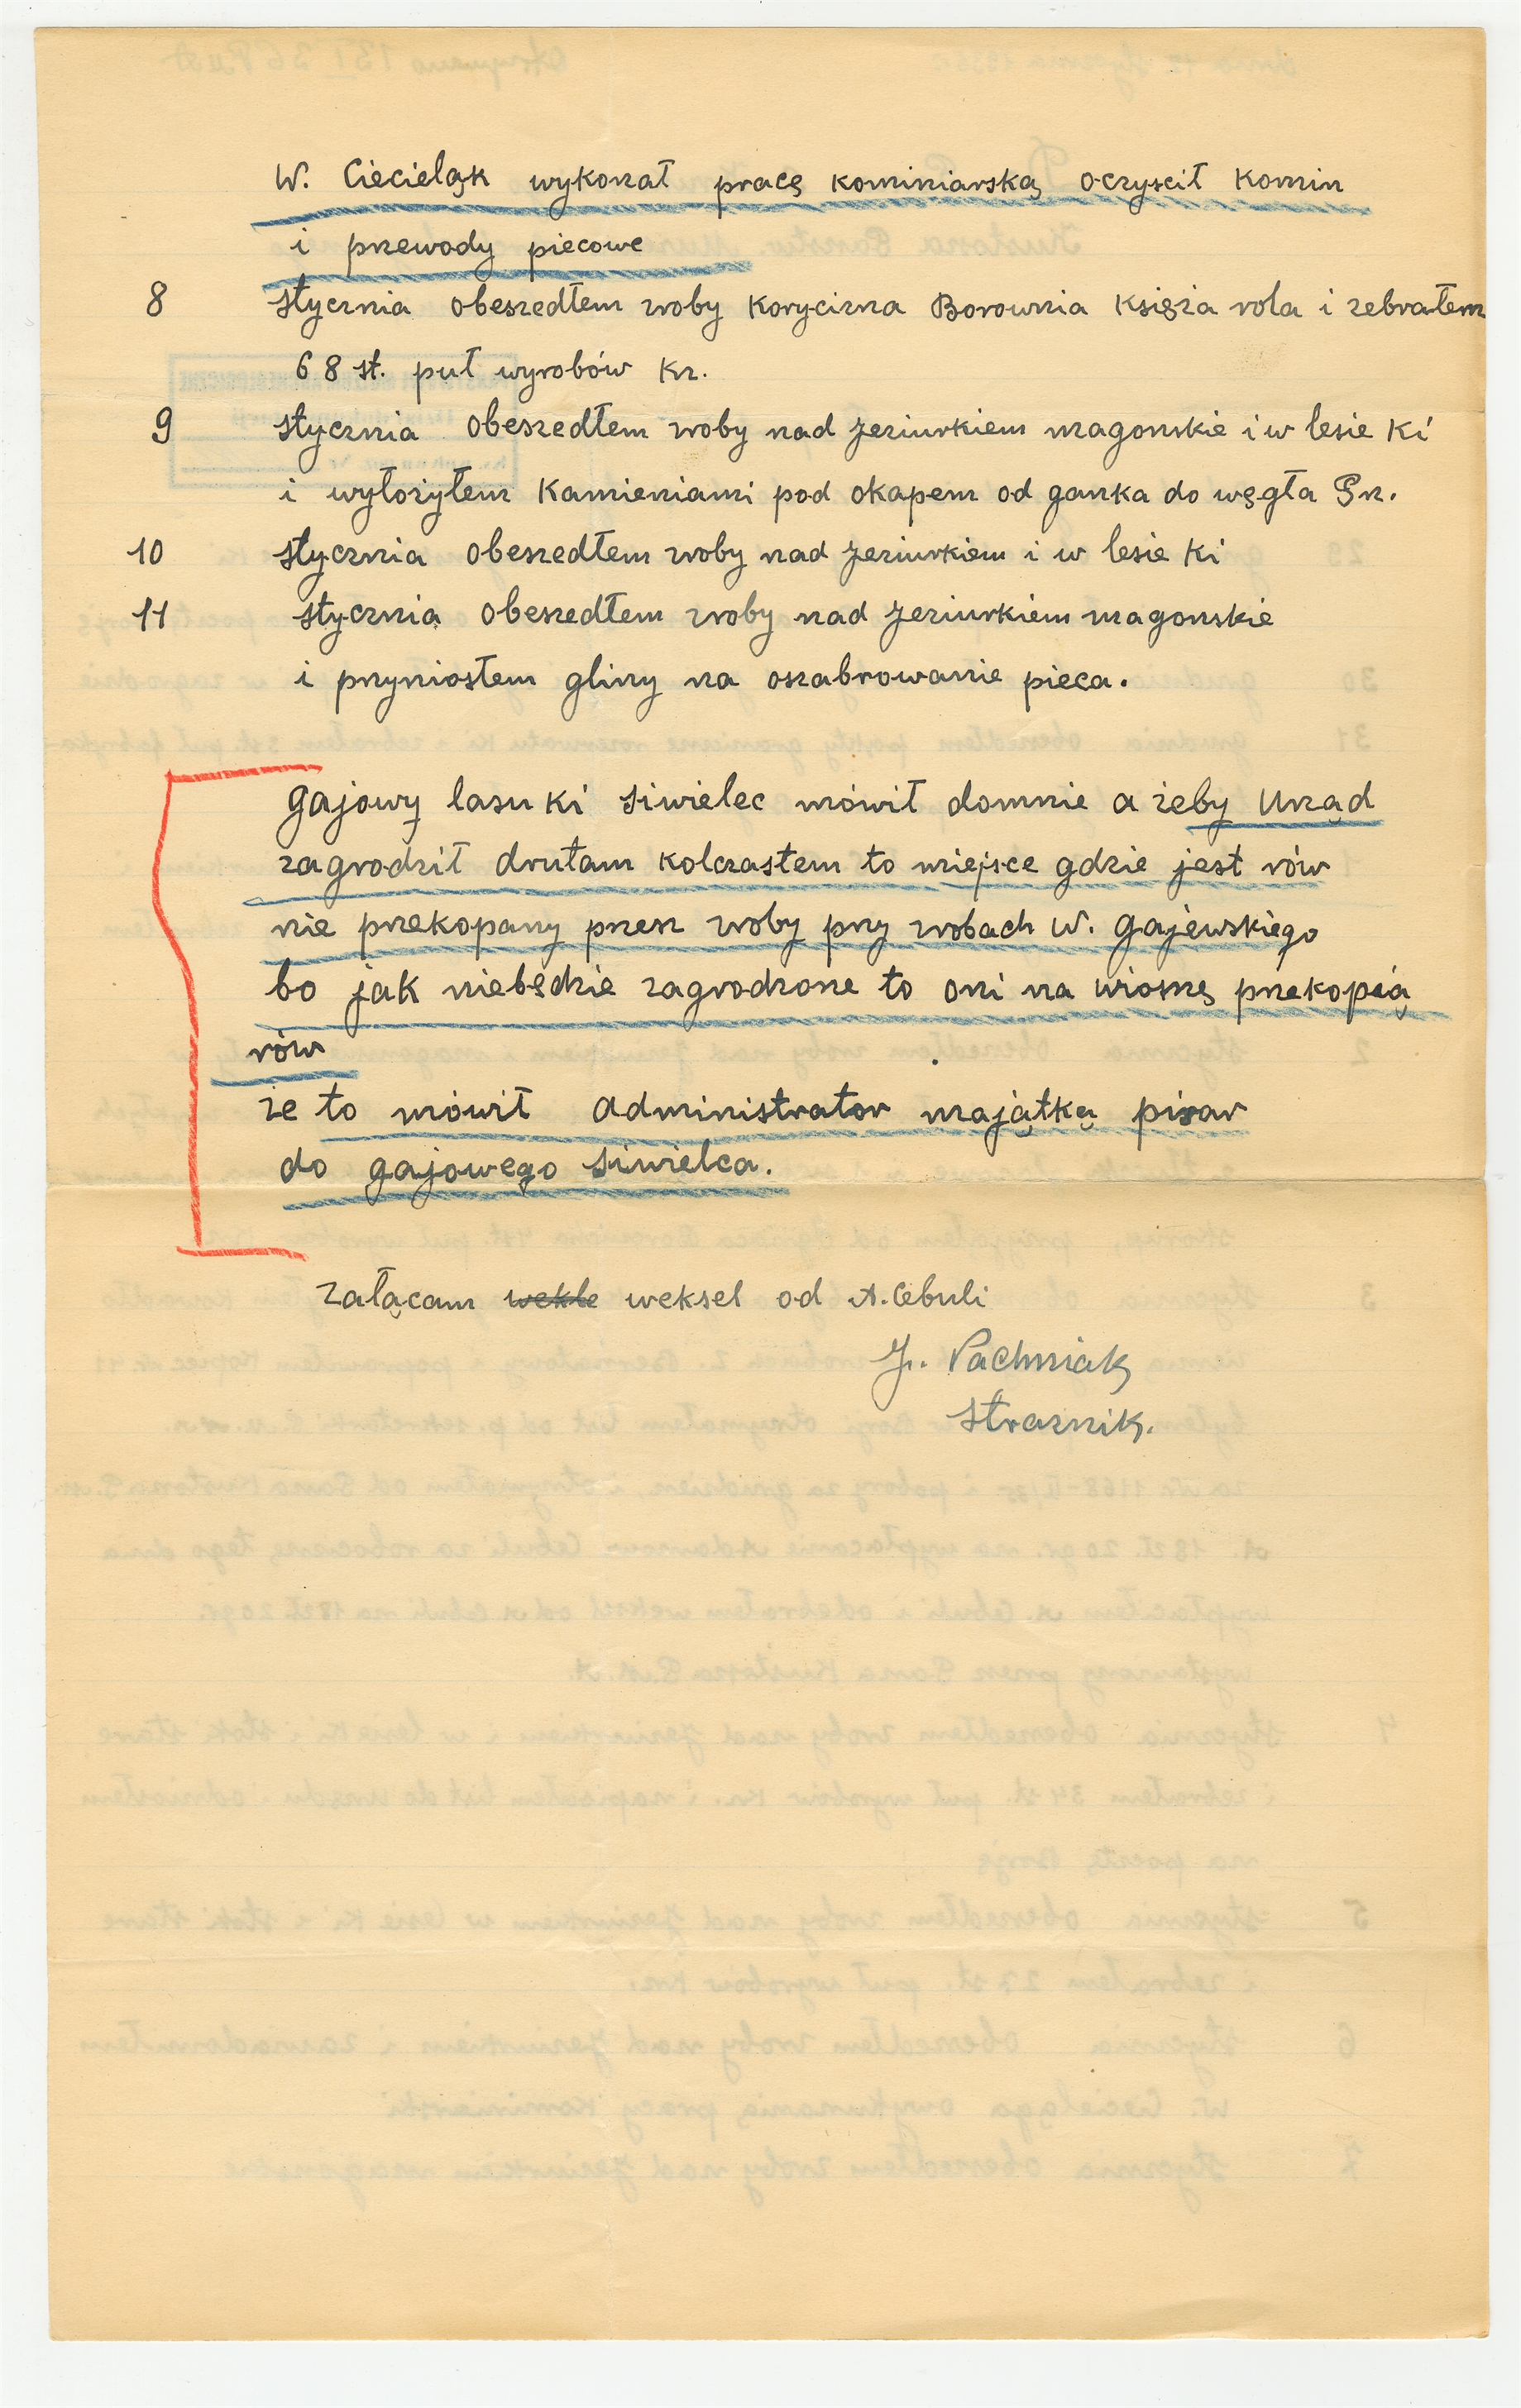 W. Ciecieląk wykonał pracę kominiarską oczyscił Komin
i przewody piecowe
8 stycznia obeszedłem zroby Korycizna Borownia Księża rola i zebrałem
68 st. puł wyrobów Kr.
9 stycznia obeszedłem zroby nad Jeziurkiem magonskie i w lesie Ki
i wyłożyłem Kamieniami pod okapem od ganka do węgła Pn.
10 stycznia obeszedłem zroby nad Jeziurkiem i w lesie Ki
11 stycznia obeszedłem zroby nad Jeziurkiem magonskie
i pryniosłem gliny na oszabrowanie pieca.
gajowy lasu Ki Siwielec mówił domnie a żeby Urząd
zagrodził drutam kolczastem to miejsce gdzie jest rów
nie przekopany przez zroby pry zrobach W. Gajewskiego
bo jak niebędzie zagrodzone to oni na wiosnę przekopią
rów
że to mówił administrator majątką pisar
do gajowego Siwielca.
załącam wekle weksel od A. Cebuli
J. Pachniak
Straznik.